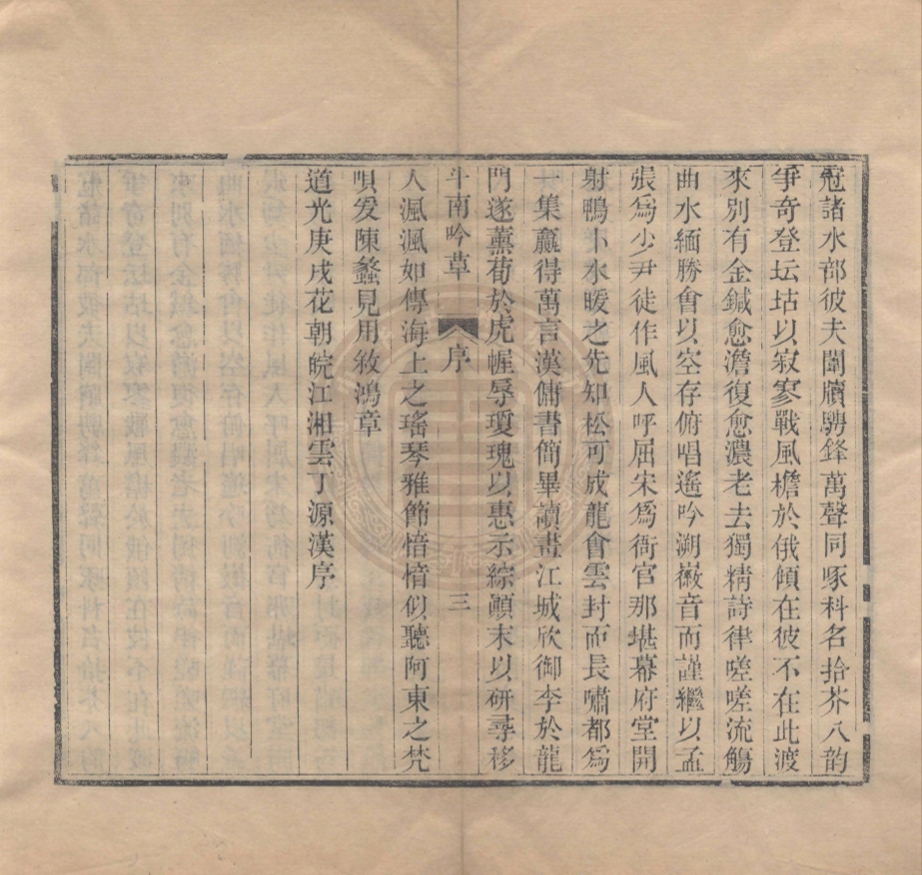 冠諸水部彼夫闈牘騁鋒萬聲同啄科名拾芥八韵
爭奇登坛坫以寂寥戰風檐於俄傾在彼不在此渡
來別有金鍼愈澹復愈濃老去獨精詩律嗟嗟流觴
曲水緬勝會以空存俯唱遙吟溯徽音而謹繼以孟
張爲少尹徒作風人呼屈宋爲衙官那堪幕府堂開
射鴨卜水暖之先知松可成龍會雲封而長嘯都爲
一集竟得萬言漢傭書簡畢讀畫江城欣御李於龍
門遂薰荀於虎幄辱瓊瑰以惠示綜顚末以研尋移
斗南吟草 序 三
人渢渢如傳海上之瑤琴雅節愔愔似聽阿東之梵
唄爰陳蠡見用敘鴻章
道光庚戌花朝皖江湘雲丁源漢序